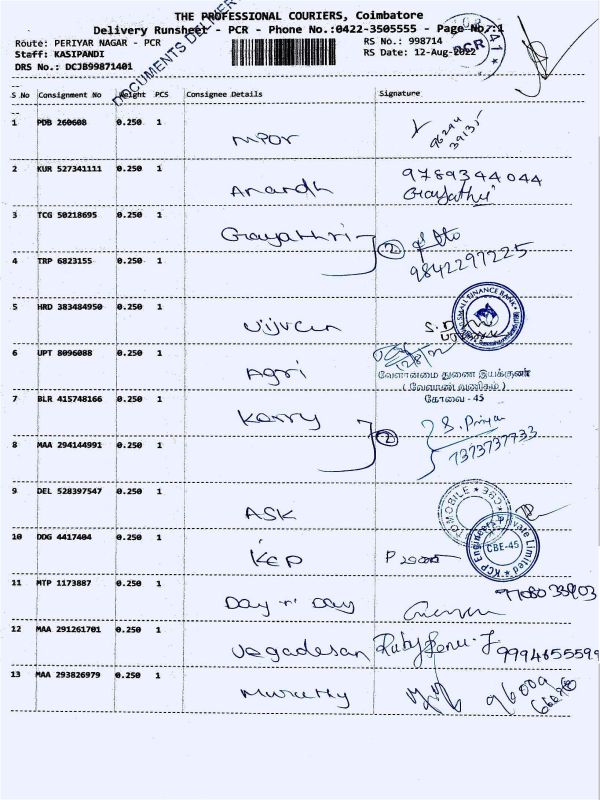 THE PROFESSIONAL COURIERS, Coimbatore
Delivery Runsheet - PCR - Phone No.:0422-3505555 - Page No.:1
Route: PERIYAR NAGAR - PCR
RS No.: 998714
Staff: KASIPANDI
RS Date: 12-Aug-2022
DRS No.: DCJB99871401
DOCUMENTS DELIVER
PCR
41
S No Consignment No Weight PCS Consignee Details Signature
1 PDB 260608 0.250 1 MPOR 96294 39135
2 KUR 527341111 0.250 1 Anandh 9789344044
Gayathri
3 TCG 50218695 0.250 1 Gayathri 2
4 TRP 6823155 0.250 1 9842297225
5 HRD 383484950 0.250 1 Vijven
SMALL FINANCE BANK
6 UPT 8096088 0.250 1 Agri
வேளாண்மை துணை இயக்குனர்
( வேளாண் வணிகம் )
கோவை - 45
7 BLR 415748166 0.250 1 Kerry 2 S. Priya
8 MAA 294144991 0.250 1 7373737733
9 DEL 528397547 0.250 1 ASK
10 DDG 4417404 0.250 1 KCP
KCP Engineers Private Limited
CBE-45
11 MTP 1173887 0.250 1 Day n Day 9708033903
12 MAA 291261701 0.250 1 Jegadesan Ruby Renu. J 9994655599
13 MAA 293826979 0.250 1 Muruthy 96009